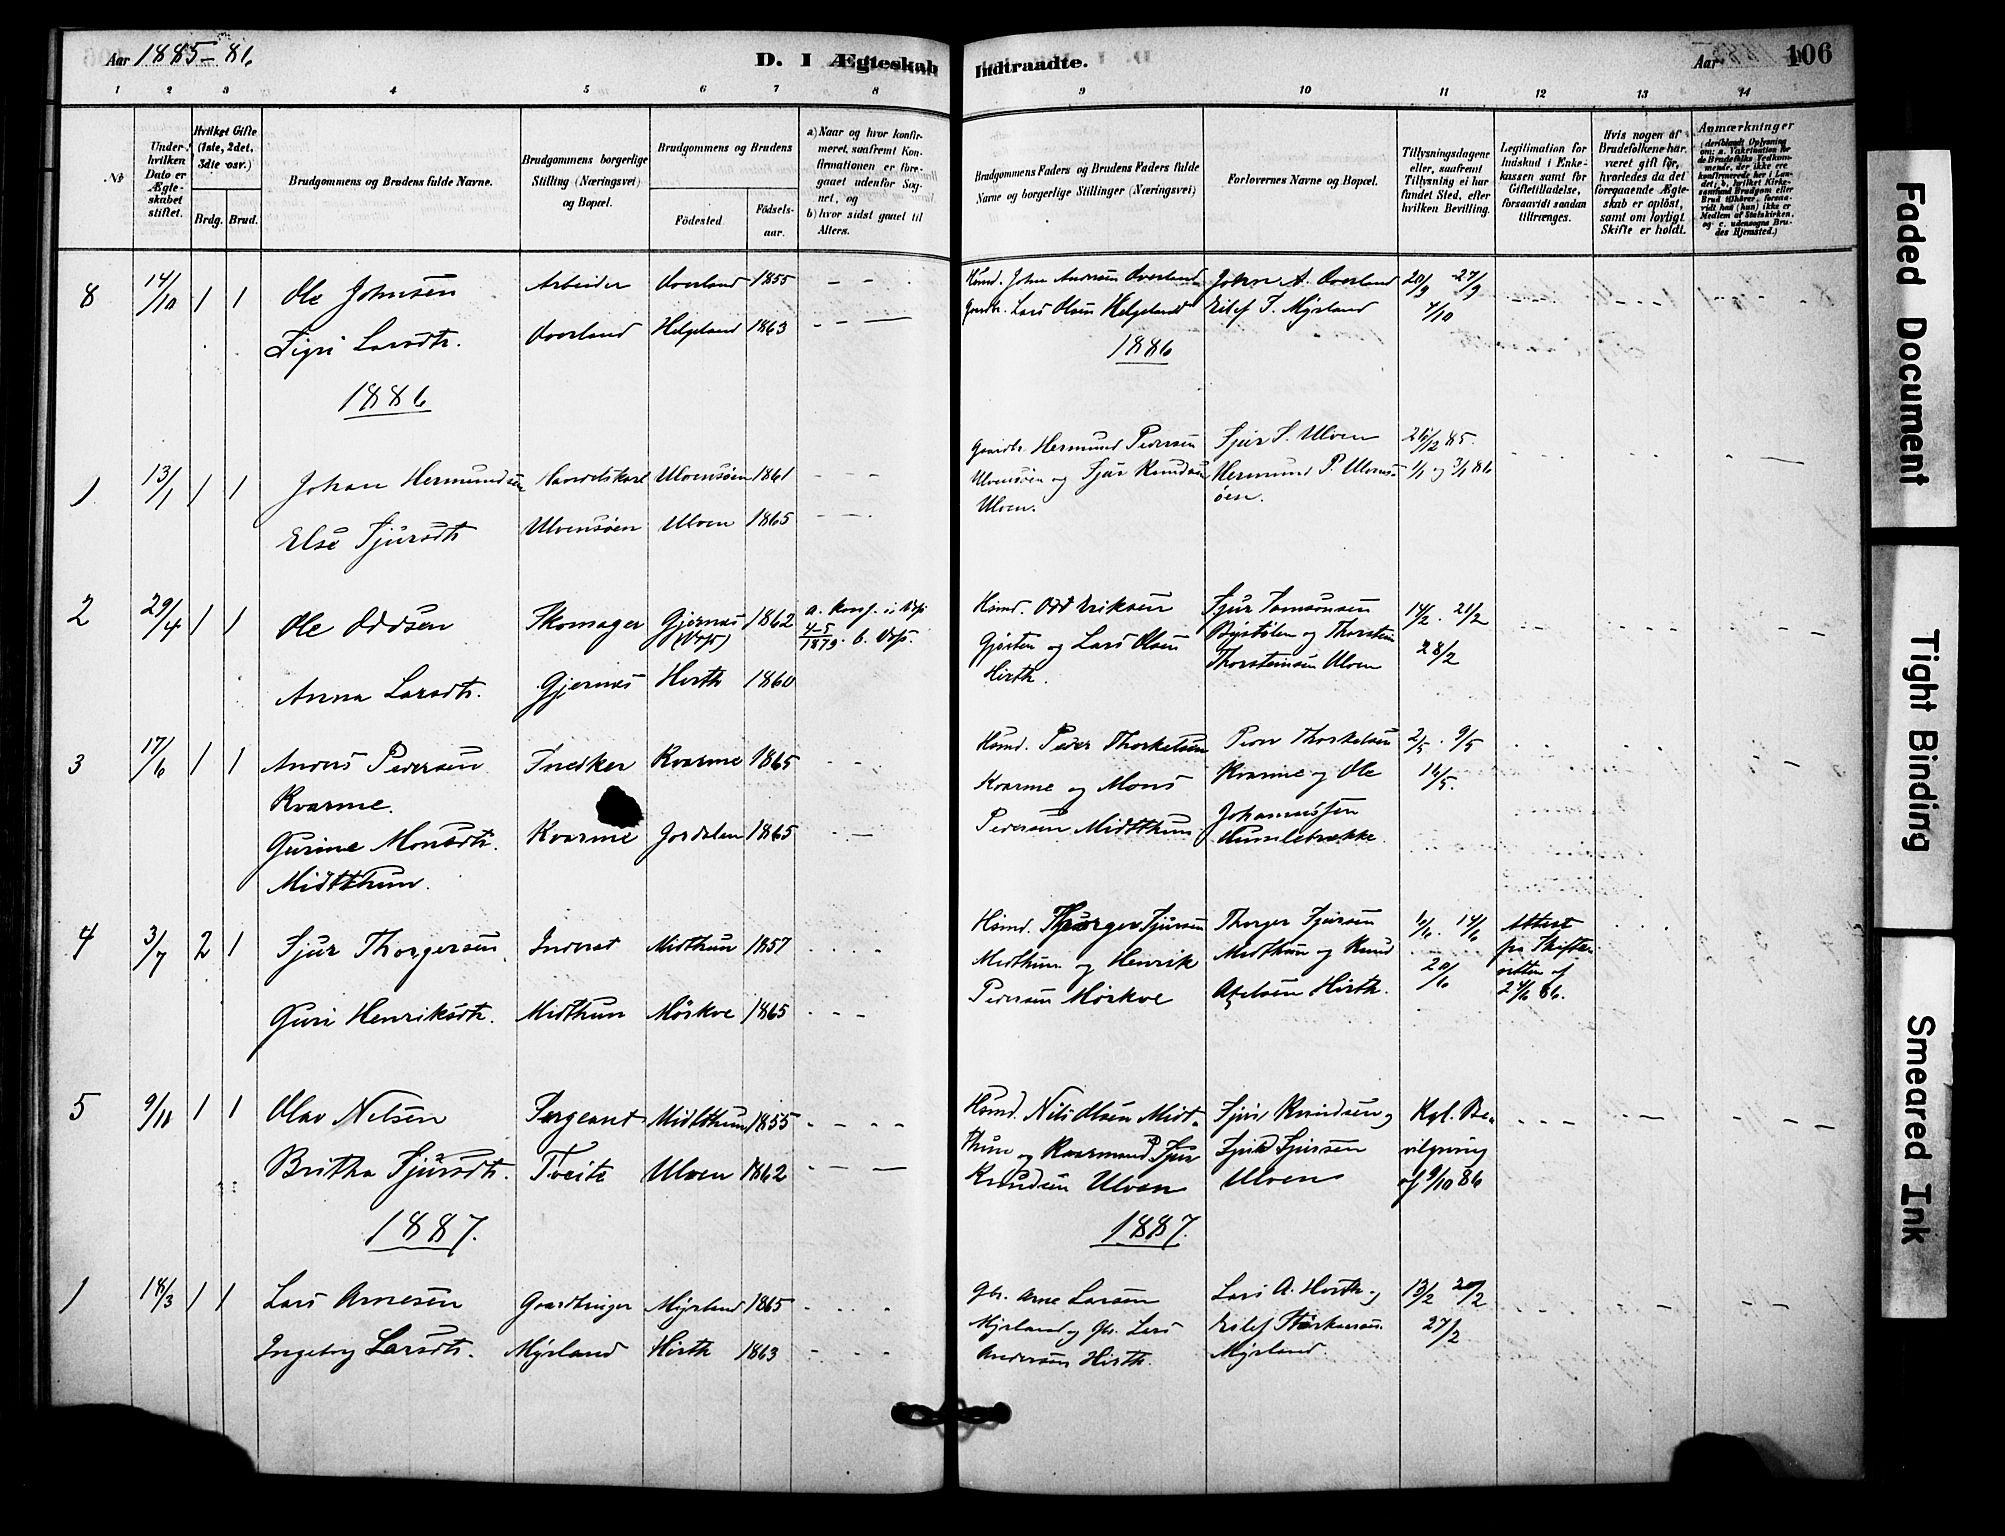 Aar 1885-86.
D. I Ægteskab Indtraadte.
Aar
106
1 2 3 4 5 6 7 8 9 10 11 12 13 14
№
Under hvilken Dato er Ægteskabet stiftet.
Hvilket Gifte (1ste, 2det, 3dte osv.)
Brdg. Brud.
Brudgommens og Brudens fulde Navne.
Brudgommens borgerlige Stilling (Næringsvei) og Bopæl.
Brudgommens og Brudens
Födested
Födselsaar.
a) Naar og hvor konfirmeret, saafremt Konfirmationen er foregaaet udenfor Sognet, og
b) hvor sidst gaaet til Alters.
Brudgommens Faders og Brudens Faders fulde Navne og borgerlige Stillinger (Næringsvei)
Forlovernes Navne og Bopæl.
Tillysningsdagene eller, saafremt Tillysning ei har fundet Sted, efter hvilken Bevilling.
Legitimation for Indskud i Enkekassen samt for Giftetilladelse, forsaavidt saadan tiltrænges.
Hvis nogen af Brudefolkene har været gift før, hvorledes da det foregaaende Ægteskab er opløst, samt om lovligt Skifte er holdt.
Anmærkninger
8 14/10 1 1 Ole Johnsen Arbeider Overland 1855 Huusmd. John Andersen Overland John A. Overland 20/9 27/9
Sigri Larsdtr. Overland Helgeland 1863 Gaardbr. Lars Olsen Helgeland Eilef T. Myrland 4/10
1886
1886
1 13/1 1 1 Johan Hermundsen Handelskarl Ulvensøen 1861 Gaardbr. Hermund Pedersen Sjur S. Ulven 26/12 85.
Else Sjursdtr Ulvensøen Ulven 1865 Ulvensøen og Sjur Knudsen Hermund P. Ulvens- 1/1 og 3/1 86
Ulven. øen.
2 29/4 1 1 Ole Oddsen Skomager Gjernæs (Voss) 1862 a. konf. i Voss 4-5 1879. b. Voss. Husmd. Odd Eriksen Sjur Samsonsen 14/2. 21/2
Gjerten og Lars Olsen Bystølen og Thorstein
Anna Larsdtr. Gjernæs Hirth 1860 Hirth. Thorsteinsen Ulven 28/2
3 17/6 1 1 Anders Pedersen Snedker Kvarme 1865 Husmd. Peder Thorkelsen Peder Thorkelsen 2/5. 9/5
Kvarme. Kvarme og Mons Kvarme og Ole 16/5.
Gurine Monsdtr. Kvarme Jordalen 1865 Pedersen Midtthun Johannessen
Midtthun. Humlebrække.
4 3/7 2 1 Sjur Thorgersen Inderst Midthun 1857 Husmd. Thorger Sjursen Thorger Sjursen 6/6. 14/6 Attest
Midthun og Henrik Midthun og Knud 20/6 fra Skifte-
Guri Henriksdtr. Midthun Mörkve 1865 Pedersen Mørkve Axelsen Hirth. retten af
24/6 86.
5 9/10 1 1 Olav Nelsen Sergeant Midtthun 1855 Husmd. Nils Olsen Midt- Sjur Knudsen og Kgl. Be-
Britha Sjursdtr. Tveite Ulven 1862 thun og Kaarmand Sjur Sjur Sjursen vilgning
Knudsen Ulven Ulven af 9/10 86
1887.
1887.
1 18/3 1 1 Lars Arnesen Gaardbruger Myrland 1865 Gbr. Arne Larsen Lars A. Hirth og 13/2 20/2
Ingebrg Larsdtr. Myrland Hirth 1863 Myrland og Gbr. Lars Eilef 27/2
Andersen Hirth. Myrland.
Faded Document
Tight Binding
Smeared Ink